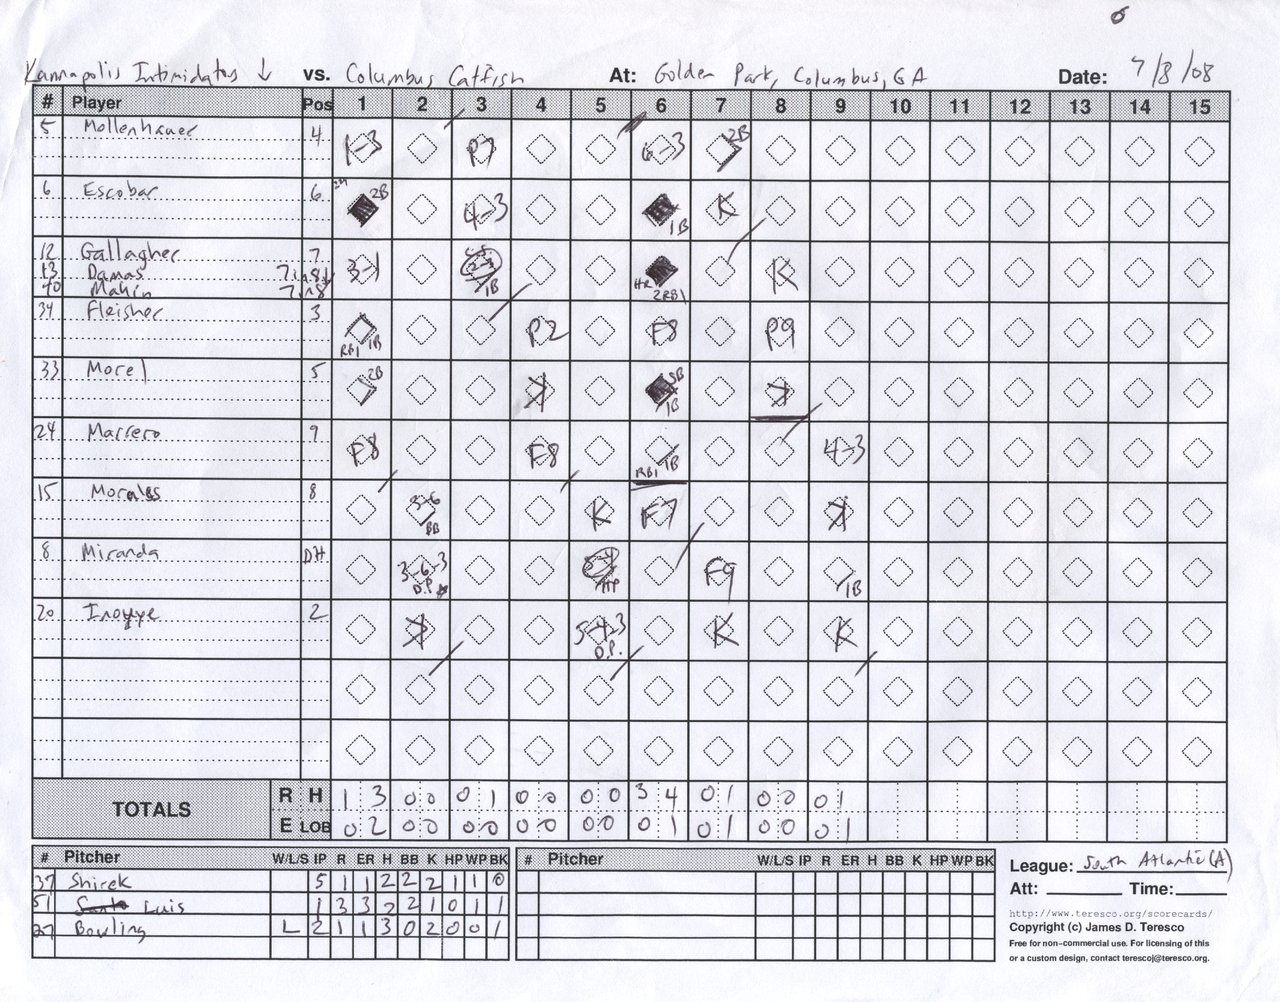 Kannapolis Intimidators ↓ vs. Columbus Catfish At: Golden Park, Columbus, GA Date: 7/8/08
# Player Pos 1 2 3 4 5 6 7 8 9 10 11 12 13 14 15
5 Mollenhauer 4 1-3 P7 6-3 2B
6 Escobar 6 2B 4-3 1B K
12 Gallagher 7 3-1 1B HR 2RBI K
13 Damas 7,8
40 Mahin 7,8
34 Fleisher 3 RBI 1B P2 F8 P9
33 Morel 5 2B K SB 1B K
24 Marrero 9 F8 F8 RBI 1B 4-3
15 Morales 8 3-6 BB K F7 K
8 Miranda DH 3-6-3 D.P. HP F9 1B
20 Inouye 2 K 5-4-3 D.P. K K
TOTALS R H 1 3 0 0 0 1 0 0 0 0 3 4 0 1 0 0 0 1
E LOB 0 2 0 0 0 0 0 0 0 0 0 1 0 1 0 0 0 1
# Pitcher W/L/S IP R ER H BB K HP WP BK
37 Shirek 5 1 1 2 2 2 1 1 0
51 Luis 1 3 3 2 2 1 0 1 1
27 Bowling L 2 1 1 3 0 2 0 0 1
# Pitcher W/L/S IP R ER H BB K HP WP BK
League: South Atlantic (A)
Att: Time:
http://www.teresco.org/scorecards/
Copyright (c) James D. Teresco
Free for non-commercial use. For licensing of this
or a custom design, contact terescoj@teresco.org.